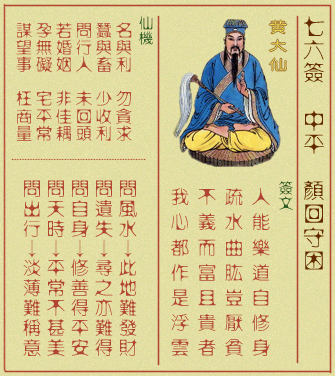 七六簽 中平 顏回守困
黄大仙
簽文
人能樂道自修身
疏水曲肱豈厭貧
不義而富且貴者
我心都作是浮雲
仙機
名與利 勿貪求
蠶與畜 少收利
問行人 未回頭
若婚姻 非佳耦
孕無礙 宅平常
謀望事 枉商量
問風水→此地難發財
問遺失→尋之亦難得
問自身→修善得平安
問天時→平常不甚美
問出行→淡薄難稱意